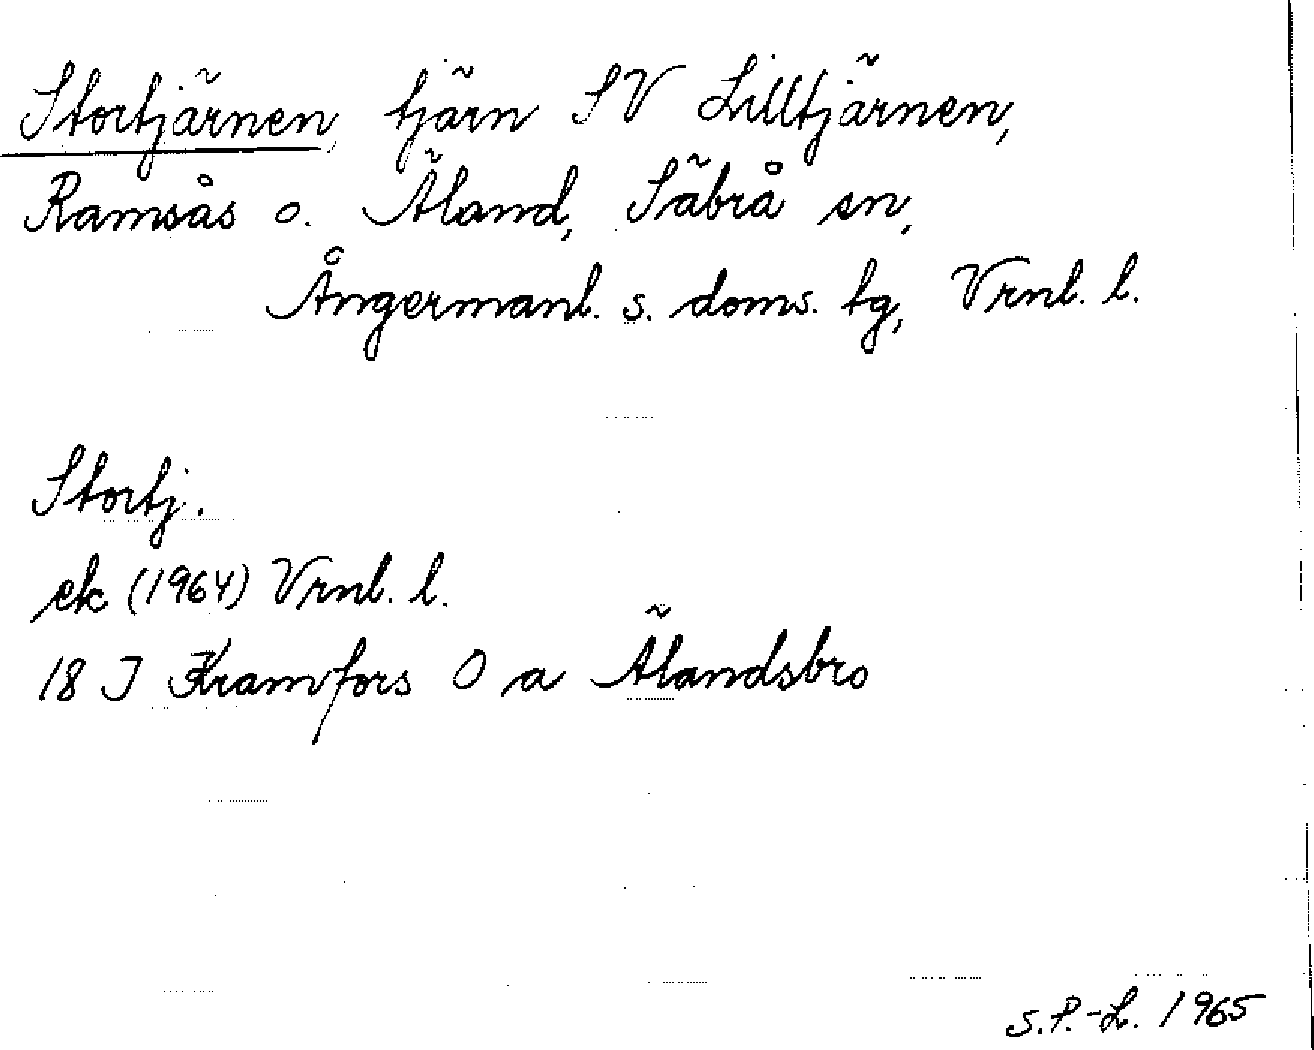 Stortjärnen, tjärn SV Lilltjärnen,
Ramsås o. Äland, Säbrå sn,
Ångermanl. s. doms. tg, Vrnl. l.
Stortj.
ek (1964) Vrnl. l.
18 J Kramfors O a Älandsbro
S.P.-L. 1965